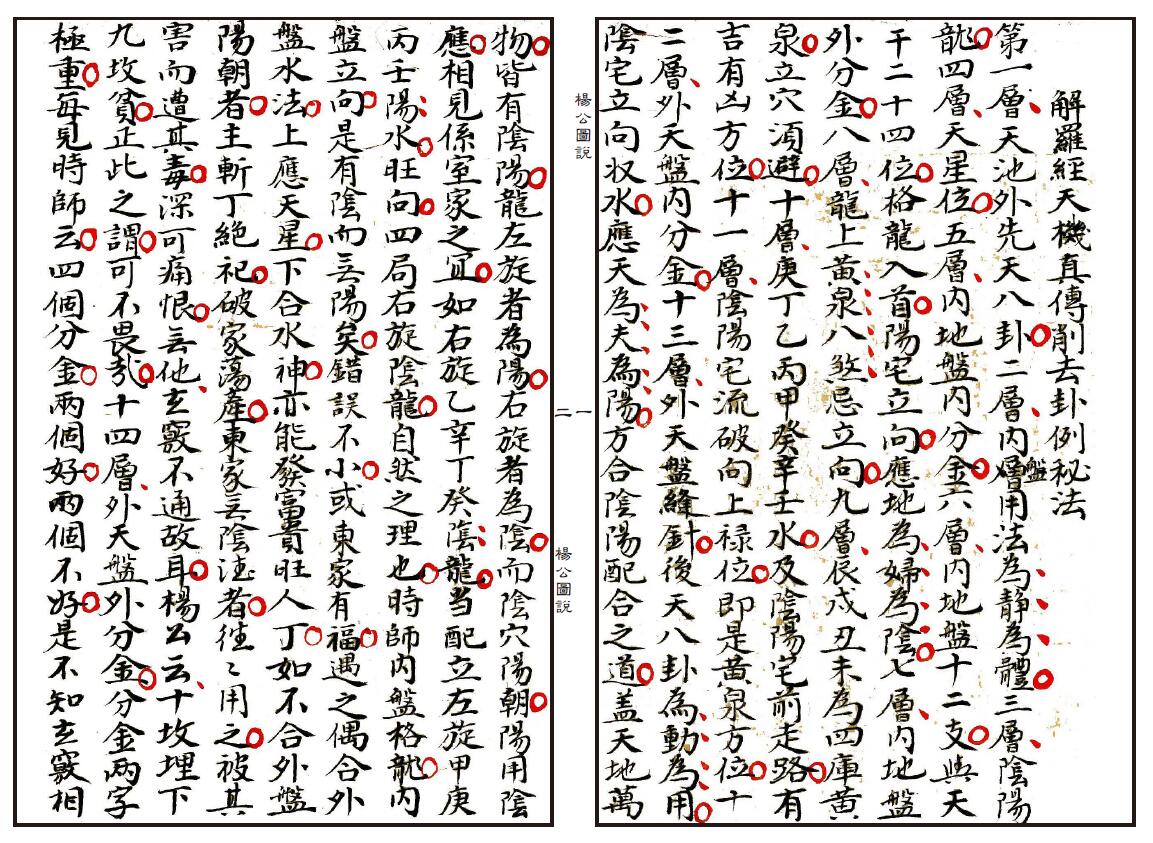 解羅經天機真傳削去卦例秘法
第一層天池外先天八卦二層內層盤用法為静為體三層陰陽
龍四層天星位五層內地盤內分金六層內地盤十二支與天
干二十四位格龍入首陽宅立向應地為婦為陰七層內地盤
外分金八層龍上黃泉八煞忌立向九層辰戌丑未為四庫黃
泉立穴須避十層庚丁乙丙甲癸辛壬水及陰陽宅前走路有
吉有凶方位十一層陰陽宅流破向上禄位即是黃泉方位十
二層外天盤內分金十三層外天盤縫針後天八卦為動為用
陰宅立向收水應天為夫為陽方合陰陽配合之道盖天地萬
楊公圖説
一
二
楊公圖説
物皆有陰陽龍左旋者為陽右旋者為陰而陰穴陽朝陽用陰
應相見係室家之宜如右旋乙辛丁癸陰龍当配立左旋甲庚
丙壬陽水旺向四局右旋陰龍自然之理也時師內盤格龍內
盤立向是有陰而无陽矣錯誤不小或東家有福遇之偶合外
盤水法上應天星下合水神亦能發富貴旺人丁如不合外盤
陽朝者主斬丁絕祀破家蕩產東家无陰德者徃〻用之被其
害而遭其毒深可痛恨无他玄竅不通故耳楊公云十坟埋下
九坟貧正此之謂可不畏哉十四層外天盤外分金分金两字
極重每見時師云四個分金兩個好兩個不好是不知玄竅相